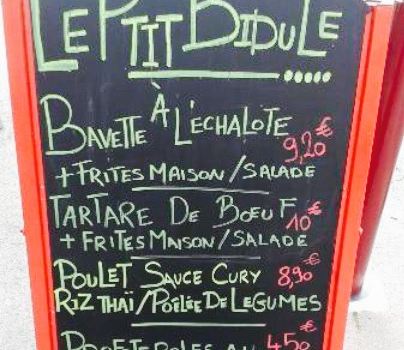 LE PTIT BIDULE
BAVETTE À L'ECHALOTE 9,20€
+ FRITES MAISON / SALADE
TARTARE DE BOEUF 10€
+ FRITES MAISON / SALADE
POULET SAUCE CURY 8,90€
RIZ THAÏ / POÊLÉE DE LEGUMES
PROFITEROLES AU 4,50€